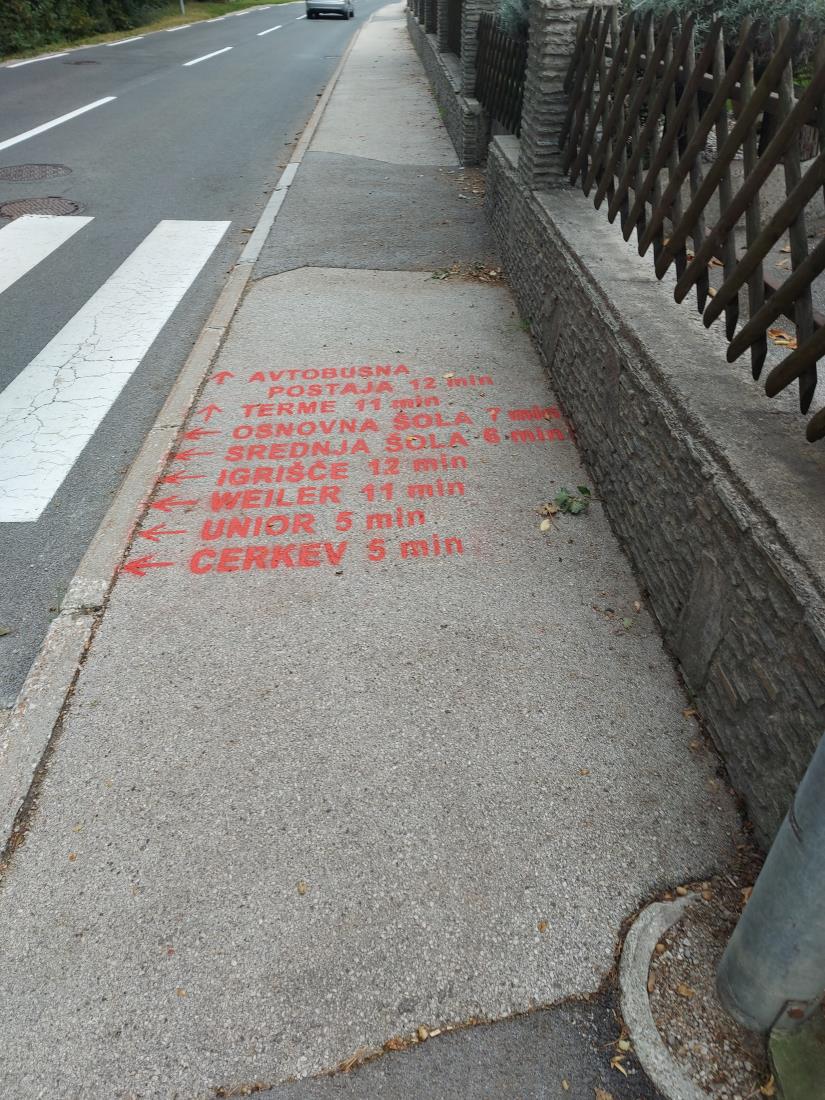 ↑ AVTOBUSNA
POSTAJA 12 min
↑ TERME 11 min
← OSNOVNA ŠOLA 7 min
← SREDNJA ŠOLA 6 min
← IGRIŠČE 12 min
← WEILER 11 min
← UNIOR 5 min
← CERKEV 5 min